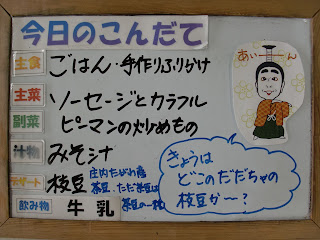 今日のこんだて
主食 ごはん・手作りふりかけ
主菜 ソーセージとカラフル
副菜 ピーマンの炒めもの
汁物 みそ汁
デザート 枝豆
庄内たがわ産
茶豆、ただ茶豆は
茶豆の一種
飲み物 牛乳
あぃ〜ん
きょうは
どこのだだちゃの
枝豆か〜?